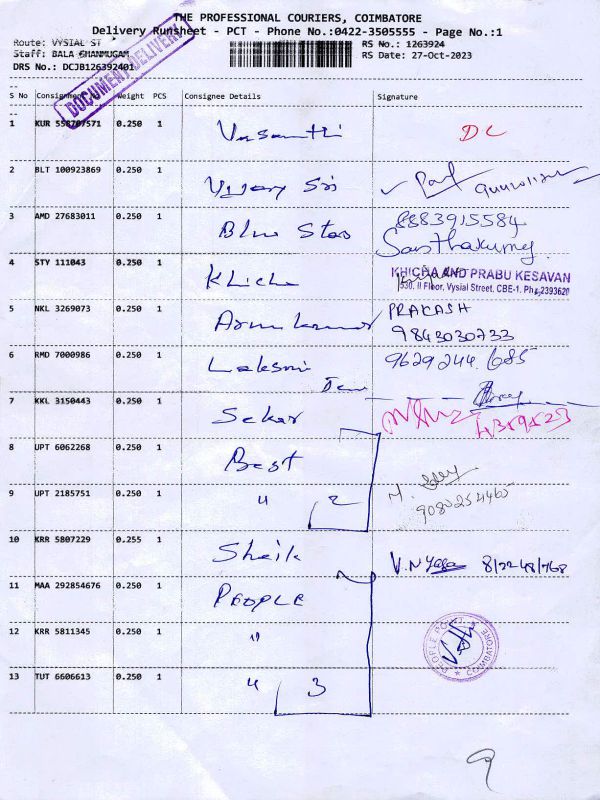 THE PROFESSIONAL COURIERS, COIMBATORE
Delivery Runsheet - PCT - Phone No.:0422-3505555 - Page No.:1
Route: VYSIAL ST
RS No.: 1263924
Staff: BALA SHANMUGAM
RS Date: 27-Oct-2023
DRS No.: DCJB126392401
DOCUMENT DELIVERY
S No Consignment No Weight PCS Consignee Details Signature
1 KUR 558707571 0.250 1 Vasanthi DL
2 BLT 100923869 0.250 1 Vijay Sri
3 AMD 27683011 0.250 1 Blue Star 8883915584
Santhakumar
4 STY 111043 0.250 1 Khicha KHICHA AND PRABU KESAVAN
530, II Floor, Vysial Street, CBE-1. Ph: 2393620
5 NKL 3269073 0.250 1 Arun kumar PRAKASH
9843030733
6 RMD 7000986 0.250 1 Lakshmi 9629244685
7 KKL 3150443 0.250 1 Sekar
8 UPT 6062268 0.250 1 Best
9 UPT 2185751 0.250 1 " 2 9080254465
10 KRR 5807229 0.255 1 Sheik
11 MAA 292854676 0.250 1 PEOPLE
12 KRR 5811345 0.250 1 "
13 TUT 6606613 0.250 1 " 3
COIMBATORE
9